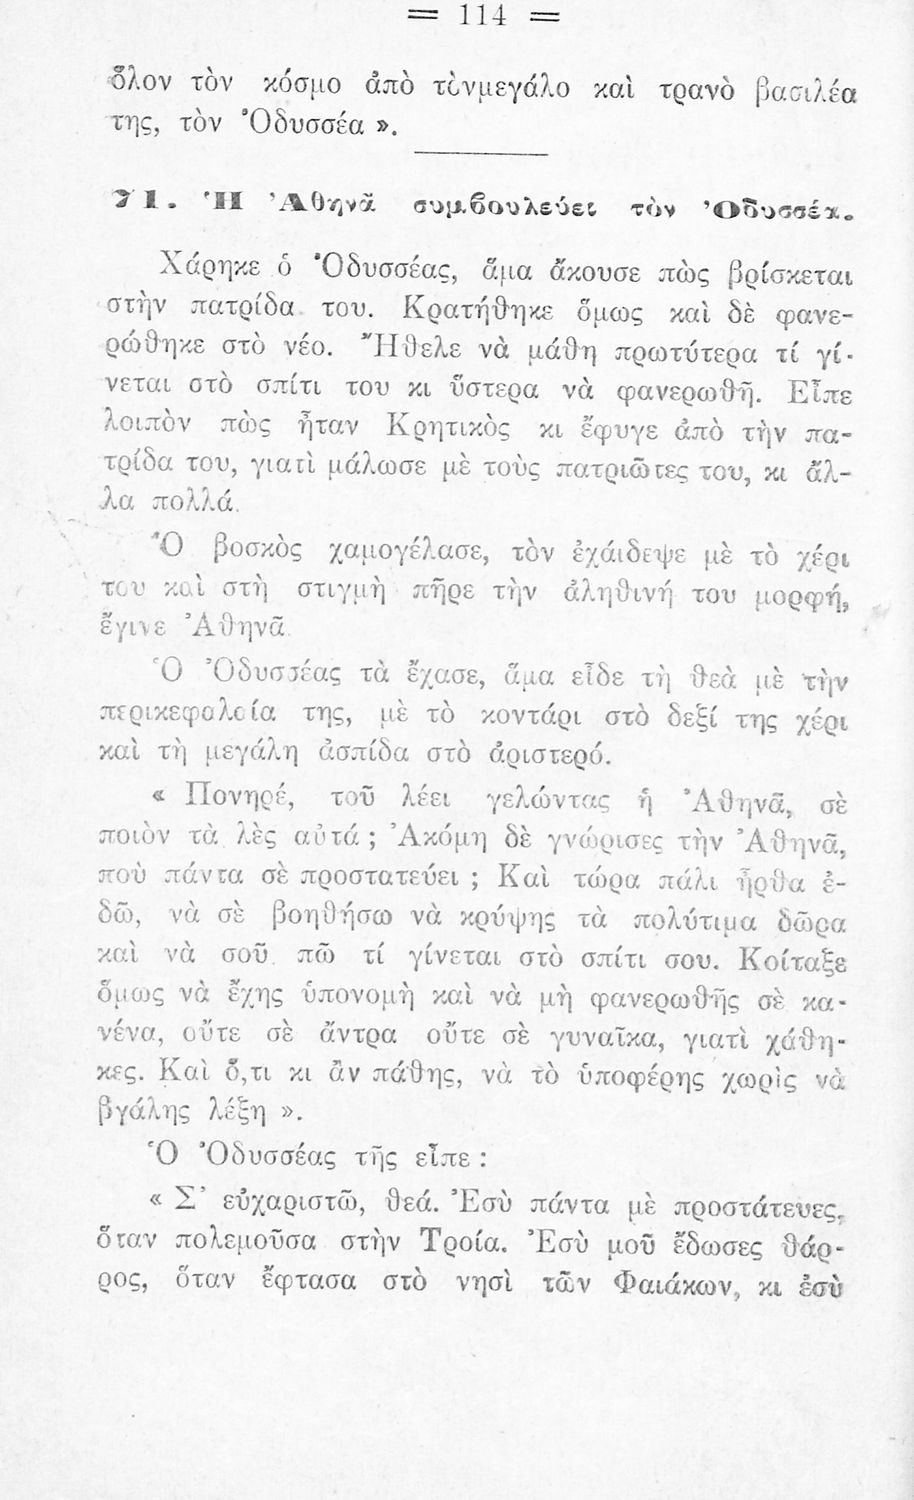 = 114 =
ὅλον τὸν κόσμο ἀπὸ τὸνμεγάλο καὶ τρανὸ βασιλέα
της, τὸν Ὀδυσσέα ».
71. Ἡ Ἀθηνᾶ συμβουλεύει τὸν Ὀδυσσέα.
Χάρηκε ὁ Ὀδυσσέας, ἅμα ἄκουσε πὼς βρίσκεται
στὴν πατρίδα του. Κρατήθηκε ὅμως καὶ δὲ φανε-
ρώθηκε στὸ νέο. Ἤθελε νὰ μάθη πρωτύτερα τί γί-
νεται στὸ σπίτι του κι ὕστερα νὰ φανερωθῆ. Εἶπε
λοιπὸν πὼς ἦταν Κρητικὸς κι ἔφυγε ἀπὸ τὴν πα-
τρίδα του, γιατὶ μάλωσε μὲ τοὺς πατριῶτες του, κι ἄλ-
λα πολλά.
Ὁ βοσκὸς χαμογέλασε, τὸν ἐχάιδεψε μὲ τὸ χέρι
του καὶ στὴ στιγμὴ πῆρε τὴν ἀληθινή του μορφή,
ἔγινε Ἀθηνᾶ.
Ὁ Ὀδυσσέας τὰ ἔχασε, ἅμα εἶδε τὴ θεὰ μὲ τὴν
περικεφαλαία της, μὲ τὸ κοντάρι στὸ δεξί της χέρι
καὶ τὴ μεγάλη ἀσπίδα στὸ ἀριστερό.
« Πονηρέ, τοῦ λέει γελώντας ἡ Ἀθηνᾶ, σὲ
ποιὸν τὰ λὲς αὐτά ; Ἀκόμη δὲ γνώρισες τὴν Ἀθηνᾶ,
ποὺ πάντα σὲ προστατεύει ; Καὶ τώρα πάλι ἦρθα ἐ-
δῶ, νὰ σὲ βοηθήσω νὰ κρύψης τὰ πολύτιμα δῶρα
καὶ νὰ σοῦ πῶ τί γίνεται στὸ σπίτι σου. Κοίταξε
ὅμως νὰ ἔχης ὑπονομὴ καὶ νὰ μὴ φανερωθῆς σὲ κα-
νένα, οὔτε σὲ ἄντρα οὔτε σὲ γυναῖκα, γιατὶ χάθη-
κες. Καὶ ὅ,τι κι ἂν πάθης, νὰ τὸ ὑποφέρης χωρὶς νὰ
βγάλης λέξη ».
Ὁ Ὀδυσσέας τῆς εἶπε :
« Σ᾽ εὐχαριστῶ, θεά. Ἐσὺ πάντα μὲ προστάτευες,
ὅταν πολεμοῦσα στὴν Τροία. Ἐσὺ μοῦ ἔδωσες θάρ-
ρος, ὅταν ἔφτασα στὸ νησὶ τῶν Φαιάκων, κι ἐσὺ